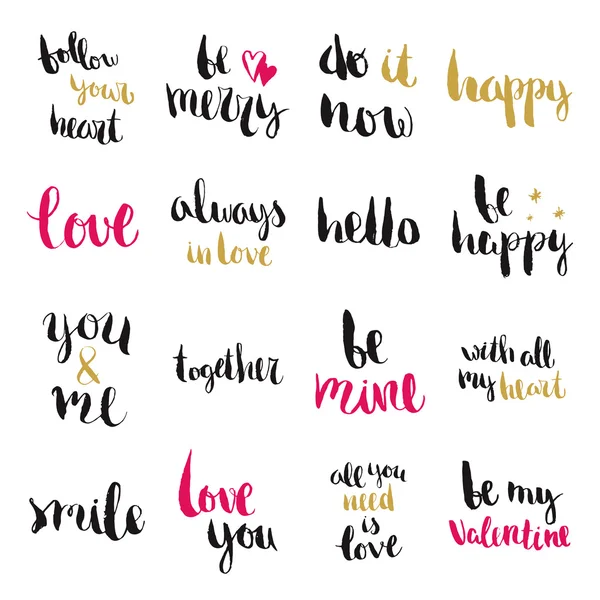 follow
your
heart
be
merry
do it
now
happy
love
always
in love
hello
be
happy
you
&
me
together
be
mine
with all
my heart
smile
love
you
all you
need
is
love
be my
Valentine